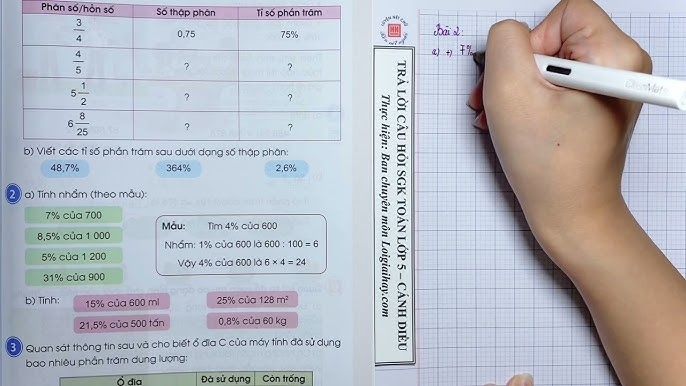 Phân số/hỗn số Số thập phân Tỉ số phần trăm
3/4 0,75 75%
4/5 ? ?
5 1/2 ? ?
6 8/25 ? ?
b) Viết các tỉ số phần trăm sau dưới dạng số thập phân:
48,7% 364% 2,6%
2 a) Tính nhẩm (theo mẫu):
7% của 700
8,5% của 1 000
5% của 1 200
31% của 900
Mẫu: Tìm 4% của 600
Nhẩm: 1% của 600 là 600 : 100 = 6
Vậy 4% của 600 là 6 × 4 = 24
b) Tính:
15% của 600 ml 25% của 128 m²
21,5% của 500 tấn 0,8% của 60 kg
3 Quan sát thông tin sau và cho biết ổ đĩa C của máy tính đã sử dụng
bao nhiêu phần trăm dung lượng:
Ổ đĩa Đã sử dụng Còn trống
TRẢ LỜI CÂU HỎI SGK TOÁN LỚP 5 – CÁNH DIỀU
Thực hiện: Ban chuyên môn Loigiaihay.com
Bài 2:
a) +) 7%